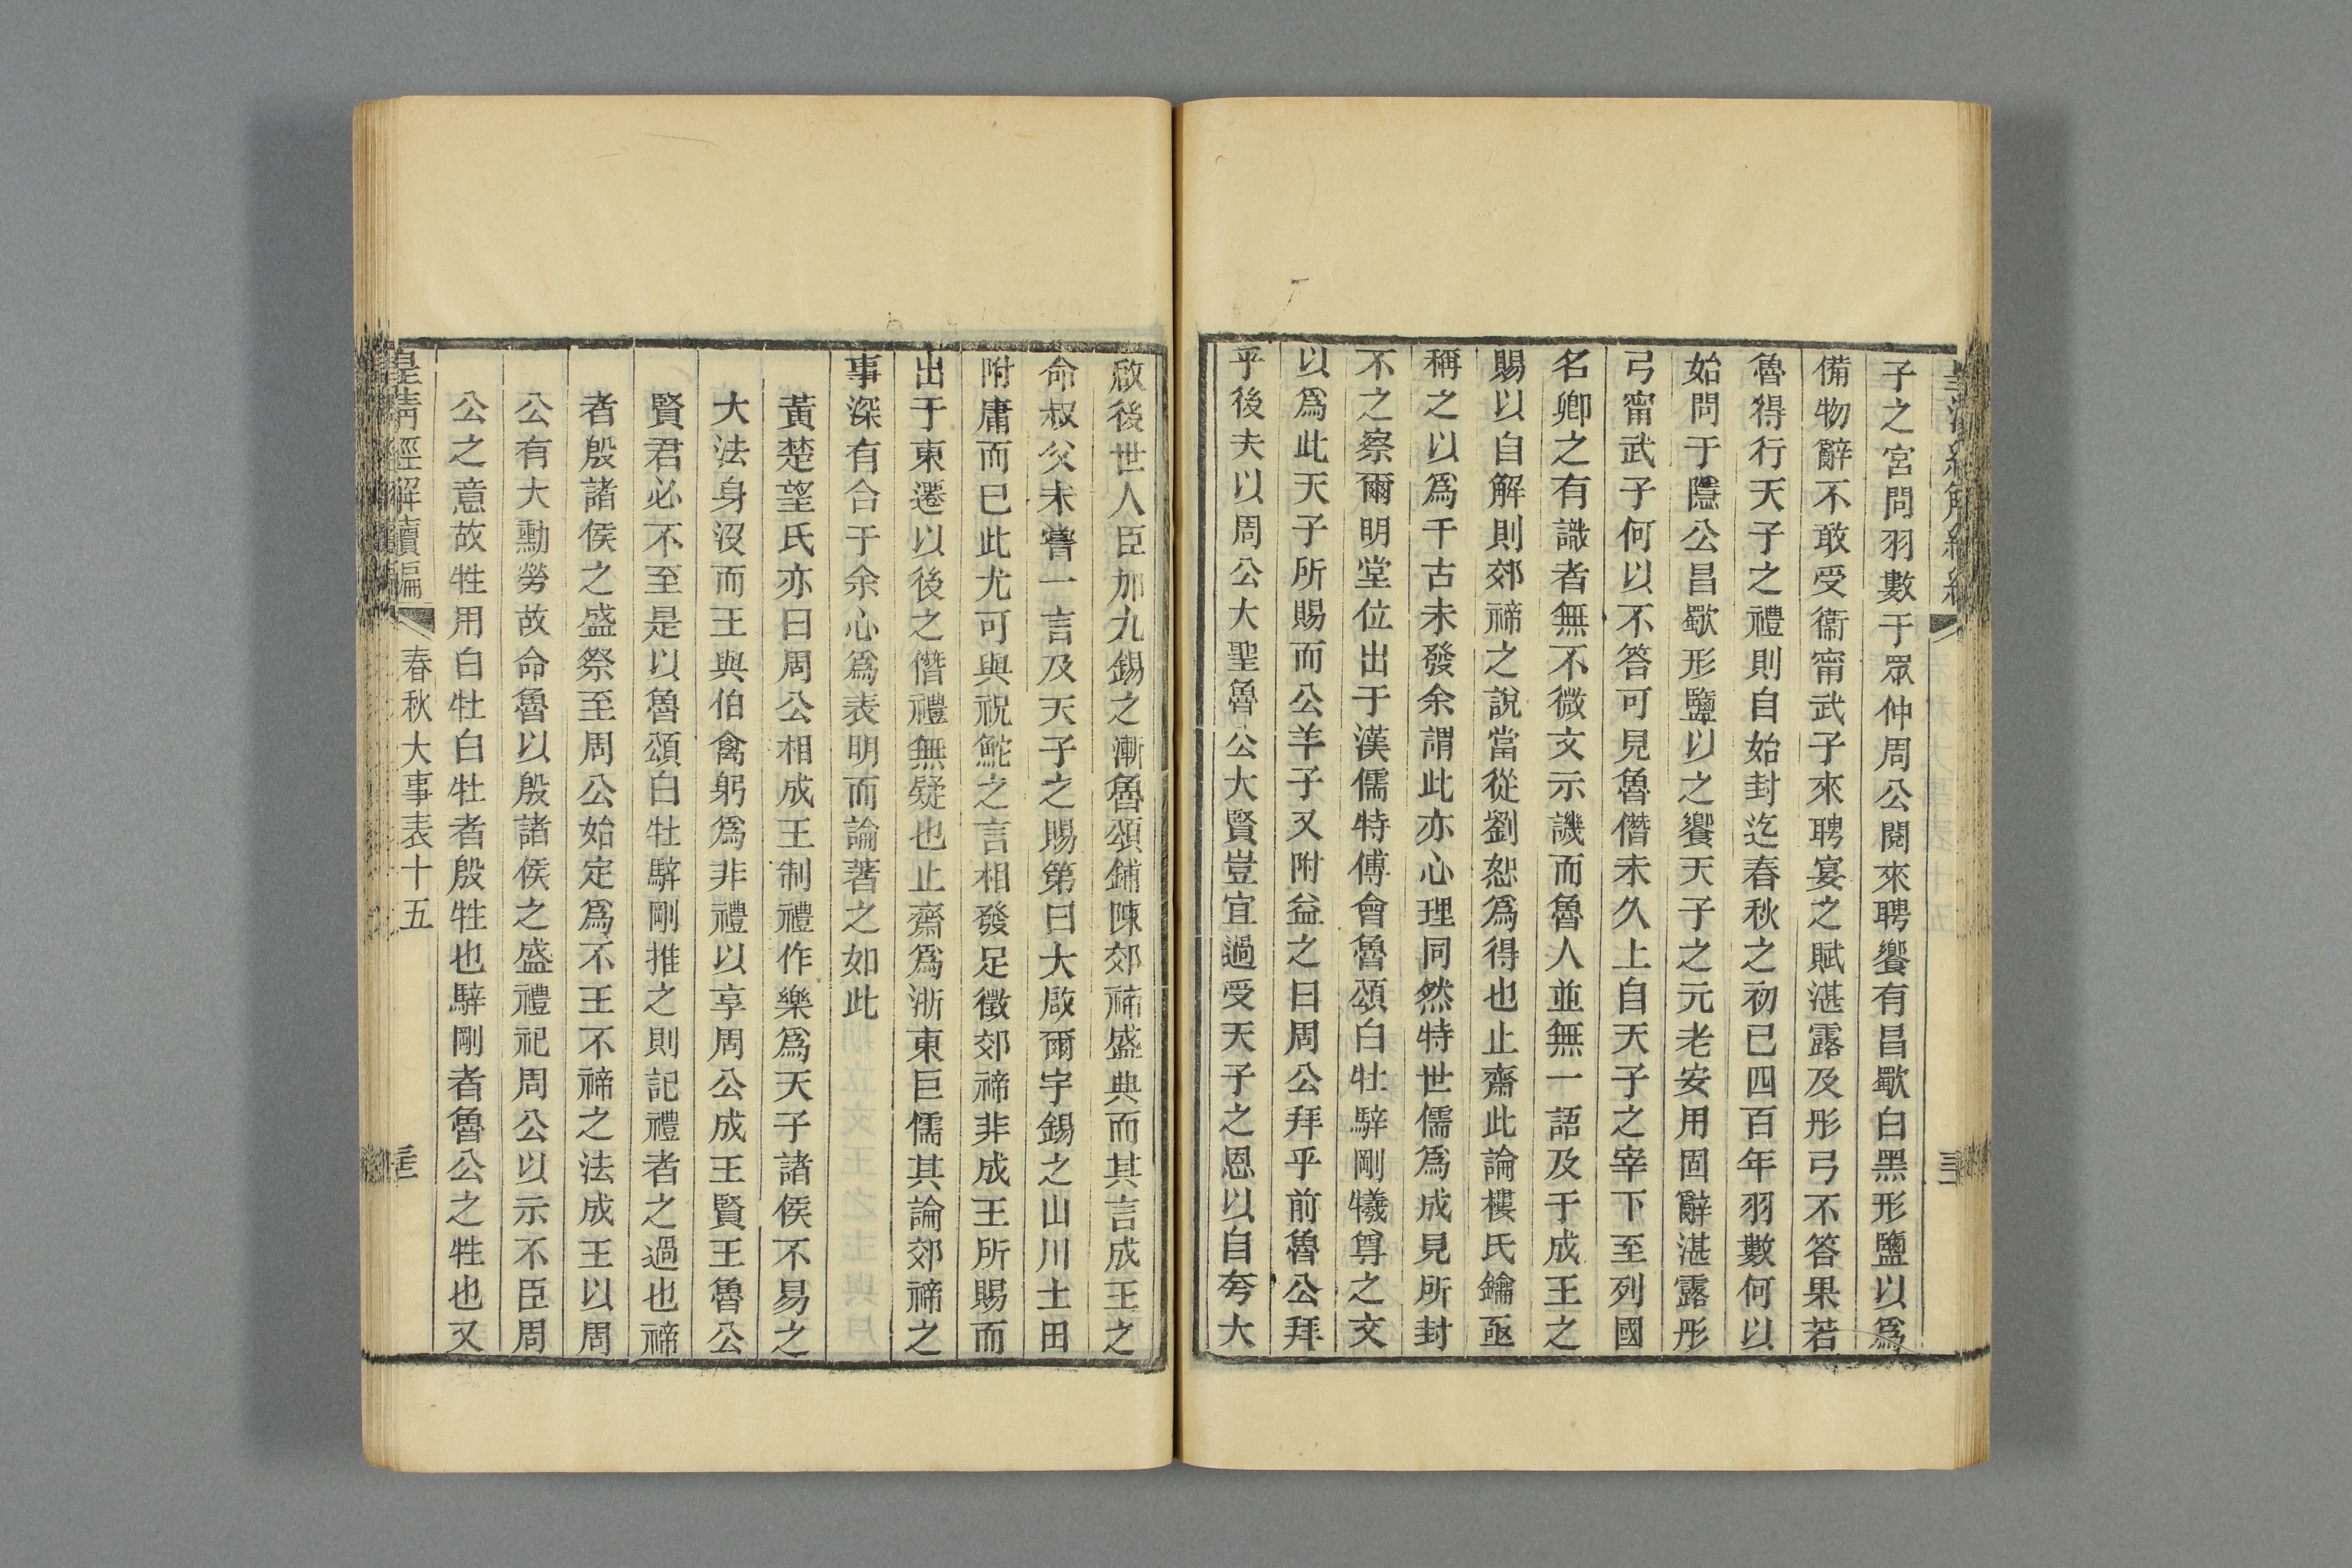 子之宮問羽數于眾仲周公閱來聘饗有昌歜白黑形鹽以爲
備物辭不敢受衞甯武子來聘宴之賦湛露及彤弓不答果若
魯得行天子之禮則自始封迄春秋之初已四百年羽數何以
始問于隱公昌歜形鹽以之饗天子之元老安用固辭湛露彤
弓甯武子何以不答可見魯僭未久上自天子之宰下至列國
名卿之有識者無不微文示譏而魯人並無一語及于成王之
賜以自解則郊禘之說當從劉恕爲得也止齋此論樓氏鑰亟
稱之以爲千古未發余謂此亦心理同然特世儒爲成見所封
不之察爾明堂位出于漢儒特傅會魯頌白牡騂剛犧尊之文
以爲此天子所賜而公羊子又附益之曰周公拜乎前魯公拜
乎後夫以周公大聖魯公大賢豈宜過受天子之恩以自夸大
啟後世人臣加九錫之漸魯頌鋪陳郊禘盛典而其言成王之
命叔父未嘗一言及天子之賜第曰大啟爾宇錫之山川土田
附庸而已此尤可與祝鮀之言相發足徵郊禘非成王所賜而
出于東遷以後之僭禮無疑也止齋爲浙東巨儒其論郊禘之
事深有合于余心爲表明而論著之如此
黃楚望氏亦曰周公相成王制禮作樂爲天子諸侯不易之
大法身沒而王與伯禽躬爲非禮以享周公成王賢王魯公
賢君必不至是以魯頌白牡騂剛推之則記禮者之過也禘
者殷諸侯之盛祭至周公始定爲不王不禘之法成王以周
公有大勳勞故命魯以殷諸侯之盛禮祀周公以示不臣周
公之意故牲用白牡白牡者殷牲也騂剛者魯公之牲也又
皇清經解續編 春秋大事表十五